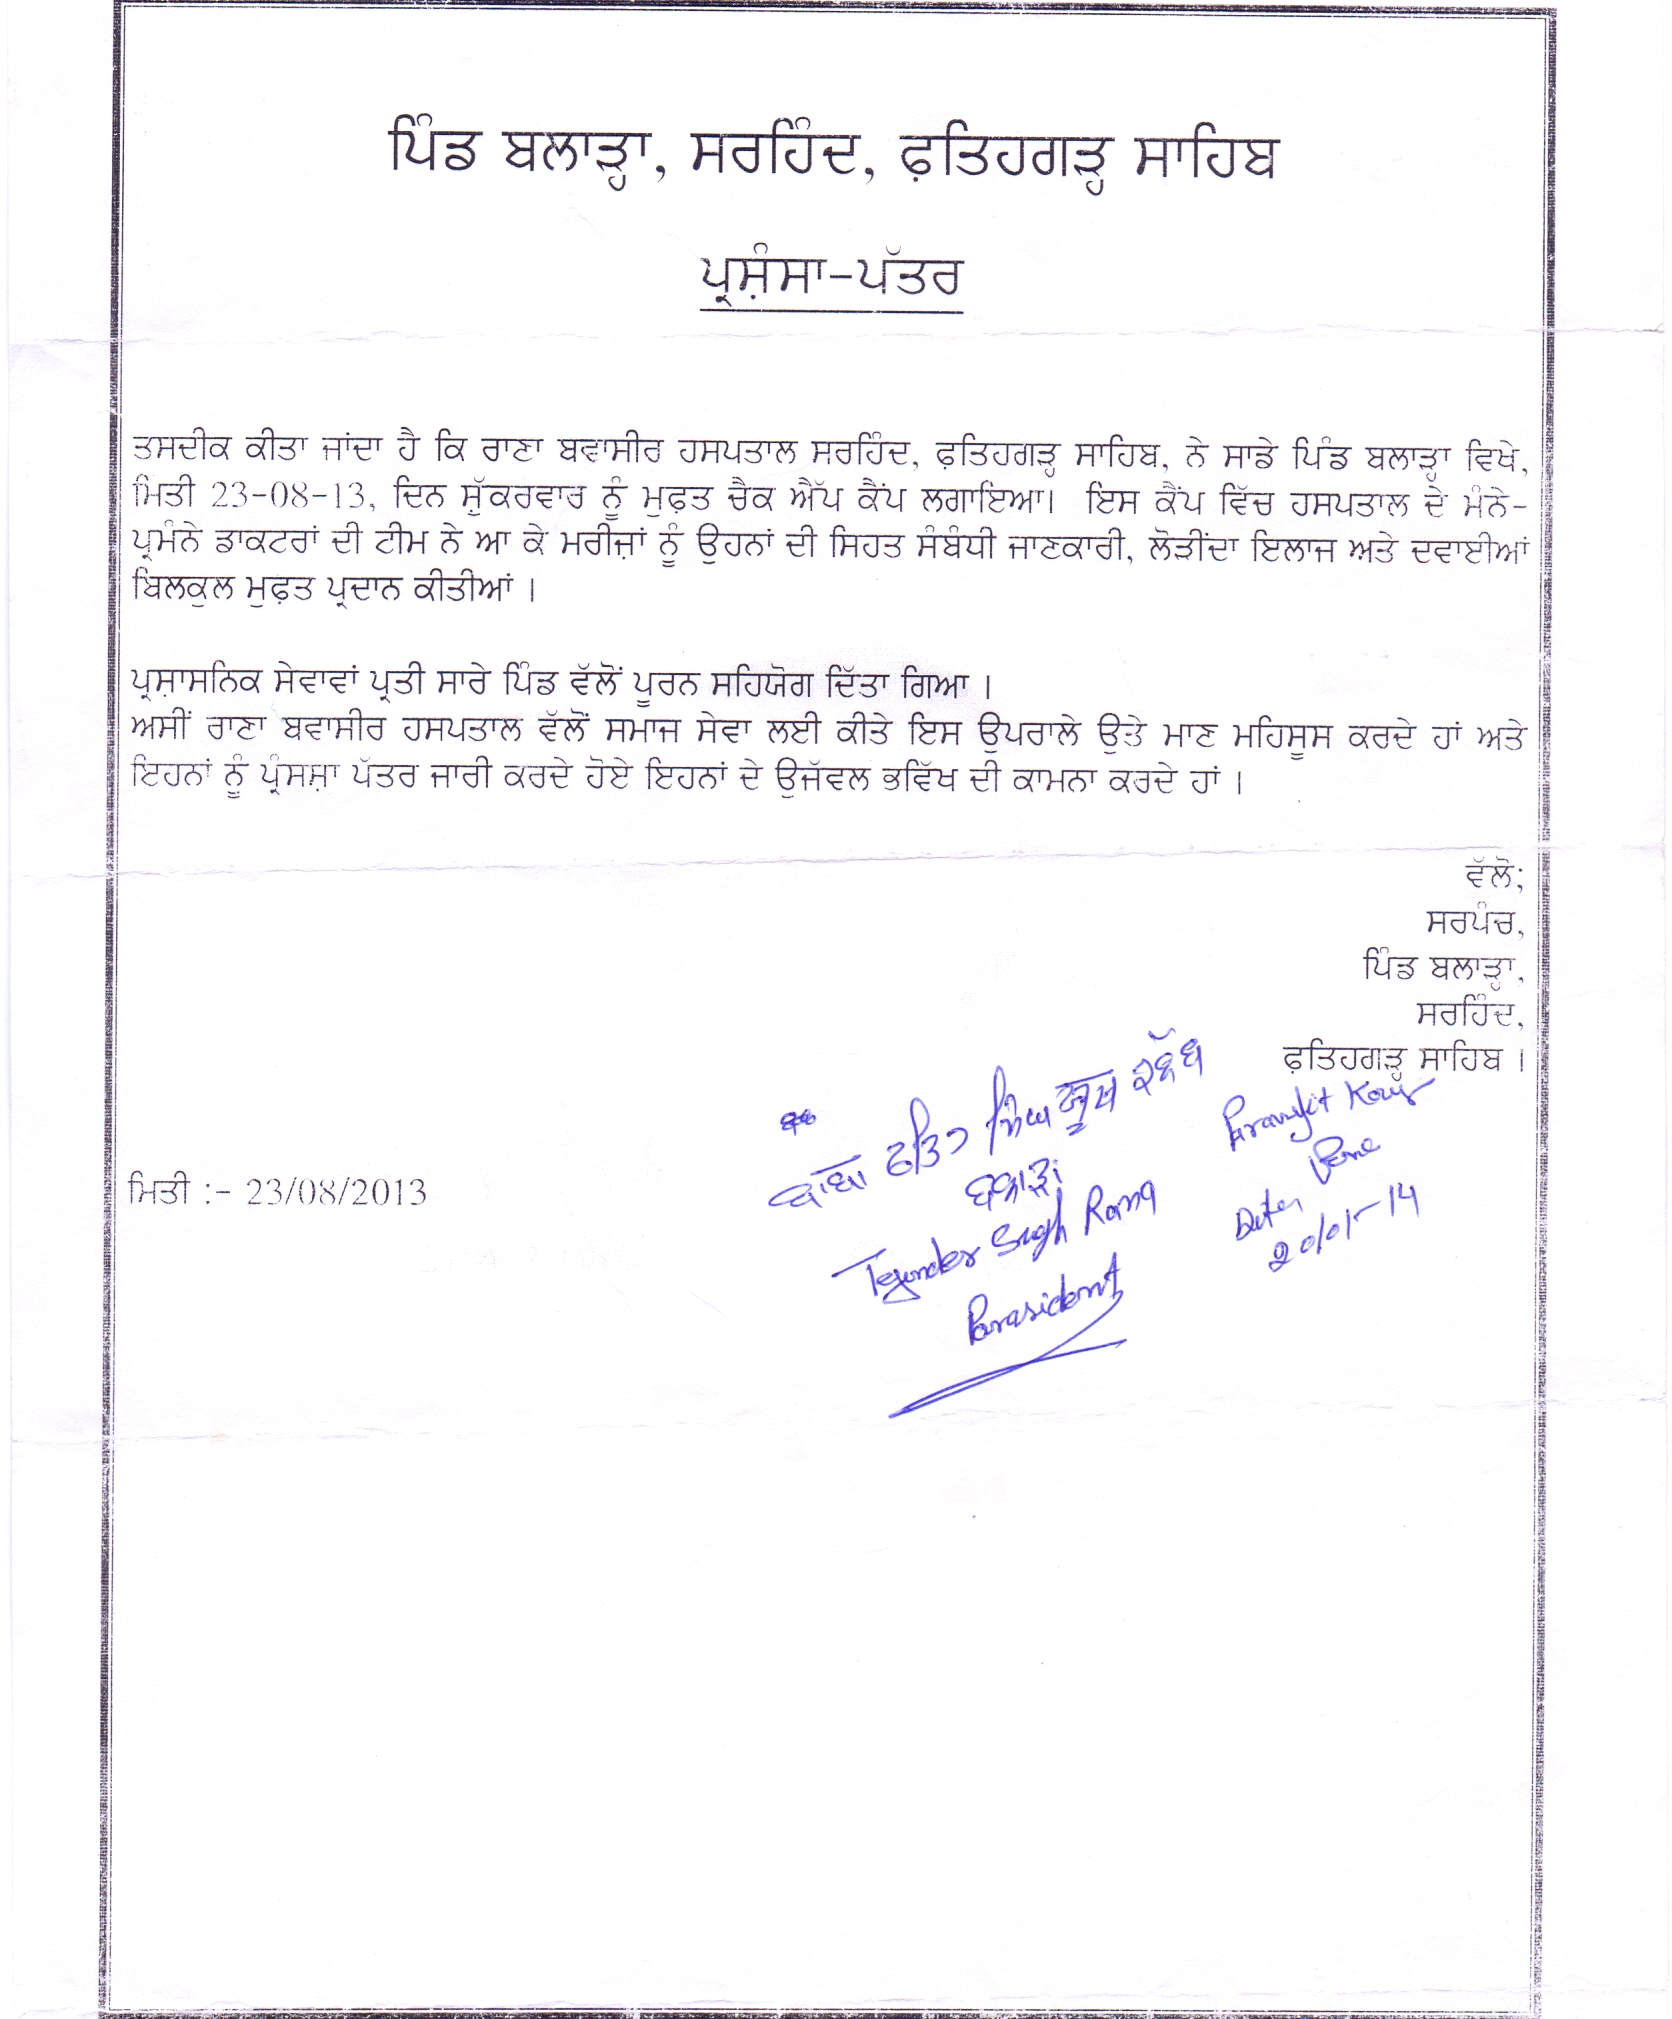 ਪਿੰਡ ਬਲਾੜ੍ਹਾ, ਸਰਹਿੰਦ, ਫ਼ਤਿਹਗੜ੍ਹ ਸਾਹਿਬ
ਪ੍ਰਸ਼ੰਸਾ-ਪੱਤਰ
ਤਸਦੀਕ ਕੀਤਾ ਜਾਂਦਾ ਹੈ ਕਿ ਰਾਣਾ ਬਵਾਸੀਰ ਹਸਪਤਾਲ ਸਰਹਿੰਦ, ਫ਼ਤਿਹਗੜ੍ਹ ਸਾਹਿਬ, ਨੇ ਸਾਡੇ ਪਿੰਡ ਬਲਾੜ੍ਹਾ ਵਿਖੇ,
ਮਿਤੀ 23-08-13, ਦਿਨ ਸ਼ੁੱਕਰਵਾਰ ਨੂੰ ਮੁਫ਼ਤ ਚੈਕ ਐੱਪ ਕੈਂਪ ਲਗਾਇਆ। ਇਸ ਕੈਂਪ ਵਿੱਚ ਹਸਪਤਾਲ ਦੇ ਮੰਨੇ-
ਪ੍ਰਮੰਨੇ ਡਾਕਟਰਾਂ ਦੀ ਟੀਮ ਨੇ ਆ ਕੇ ਮਰੀਜ਼ਾਂ ਨੂੰ ਉਹਨਾਂ ਦੀ ਸਿਹਤ ਸੰਬੰਧੀ ਜਾਣਕਾਰੀ, ਲੋੜੀਂਦਾ ਇਲਾਜ ਅਤੇ ਦਵਾਈਆਂ
ਬਿਲਕੁਲ ਮੁਫ਼ਤ ਪ੍ਰਦਾਨ ਕੀਤੀਆਂ ।
ਪ੍ਰਸ਼ਾਸਨਿਕ ਸੇਵਾਵਾਂ ਪ੍ਰਤੀ ਸਾਰੇ ਪਿੰਡ ਵੱਲੋਂ ਪੂਰਨ ਸਹਿਯੋਗ ਦਿੱਤਾ ਗਿਆ ।
ਅਸੀਂ ਰਾਣਾ ਬਵਾਸੀਰ ਹਸਪਤਾਲ ਵੱਲੋਂ ਸਮਾਜ ਸੇਵਾ ਲਈ ਕੀਤੇ ਇਸ ਉਪਰਾਲੇ ਉਤੇ ਮਾਣ ਮਹਿਸੂਸ ਕਰਦੇ ਹਾਂ ਅਤੇ
ਇਹਨਾਂ ਨੂੰ ਪ੍ਰੰਸਸ਼ਾ ਪੱਤਰ ਜਾਰੀ ਕਰਦੇ ਹੋਏ ਇਹਨਾਂ ਦੇ ਉਜੱਵਲ ਭਵਿੱਖ ਦੀ ਕਾਮਨਾ ਕਰਦੇ ਹਾਂ ।
ਵੱਲੋਂ;
ਸਰਪੰਚ,
ਪਿੰਡ ਬਲਾੜ੍ਹਾ,
ਸਰਹਿੰਦ,
ਫ਼ਤਿਹਗੜ੍ਹ ਸਾਹਿਬ ।
ਬਾਬਾ ਫਤਿਹ ਸਿੰਘ ਯੂਥ ਕਲੱਬ
ਬਲਾੜਾ
Tejinder Singh Rana
Parasident
Paramjit Kaur
20/01-14
ਮਿਤੀ :- 23/08/2013